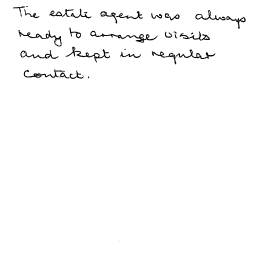 The estate agent was always
ready to arrange visits
and kept in regular
contact.